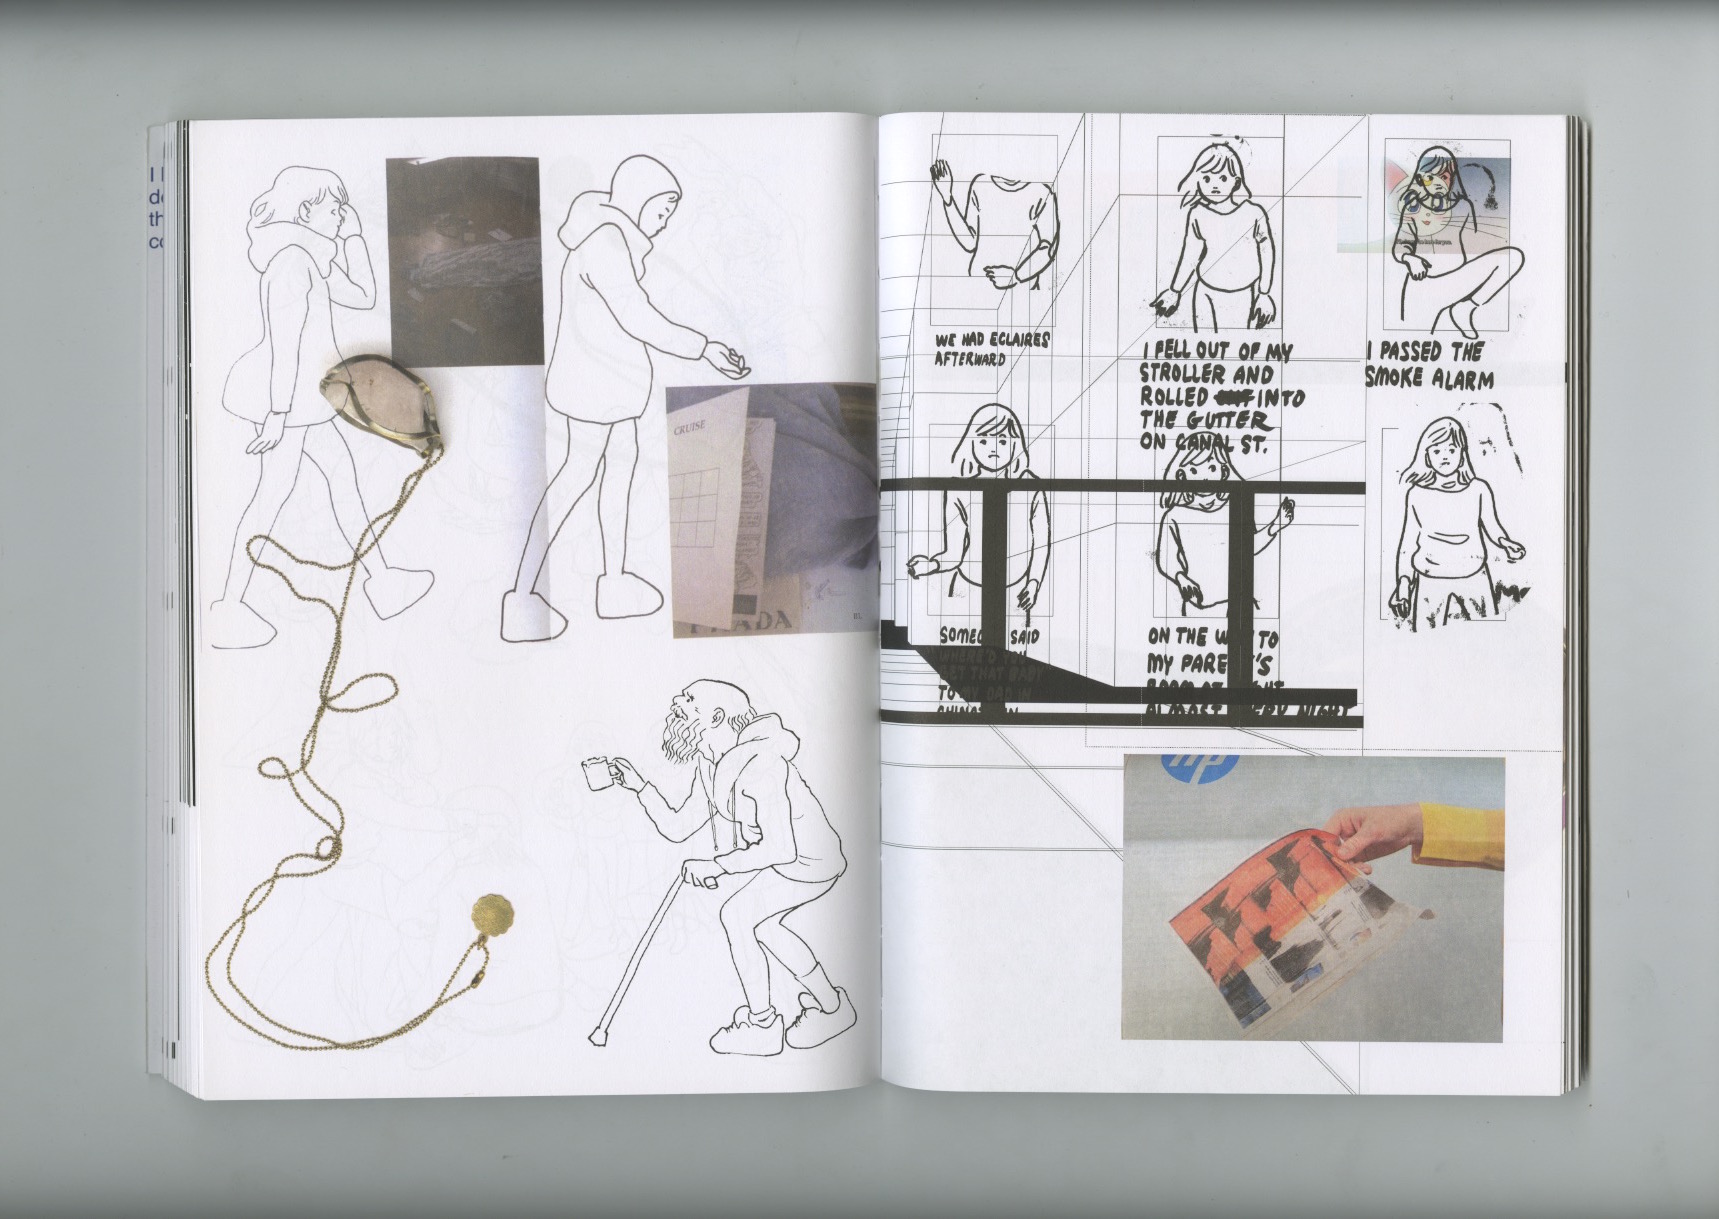 I
de
th
co
CRUISE
PRADA
WE HAD ECLAIRES
AFTERWARD
I FELL OUT OF MY
STROLLER AND
ROLLED INTO
THE GUTTER
ON CANAL ST.
I PASSED THE
SMOKE ALARM
SAID
WHERE'D YOU
GET THAT BABY
TO MY DAD IN
ON THE WAY TO
MY PARENT'S
ROOM AT NIGHT
ALMOST EVERY NIGHT
hp